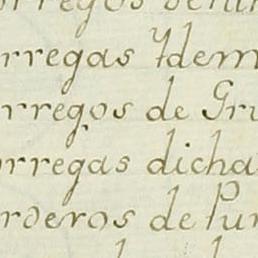 rregos
rregas Ydem
rregos de Gru
orregas dicha
rderos de Pur